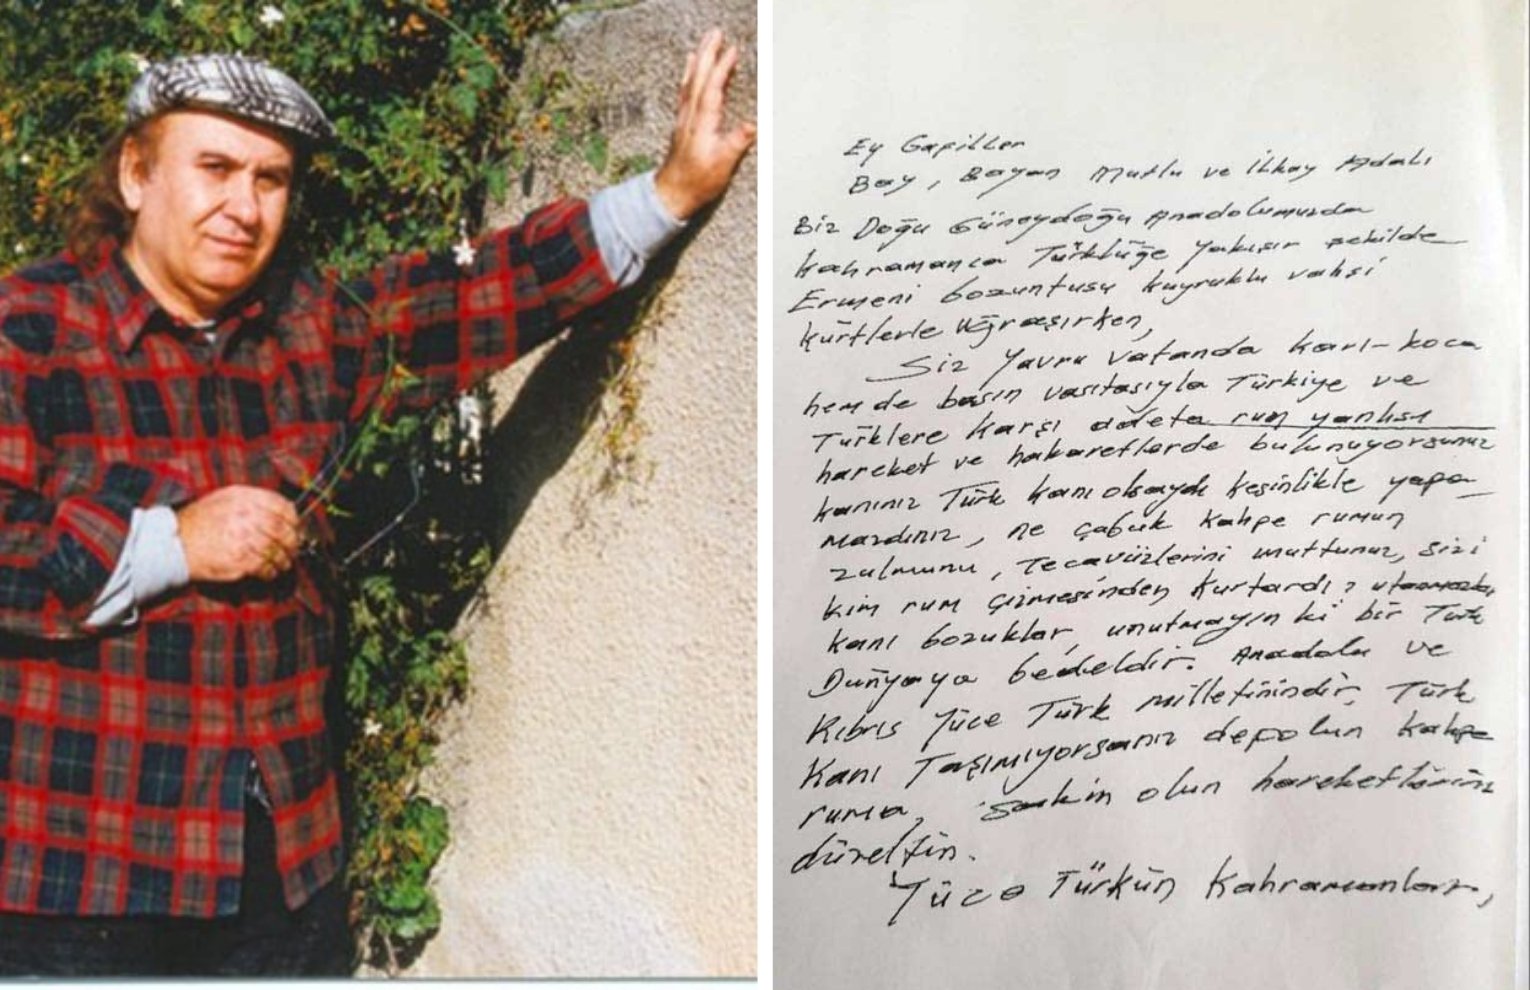 Ey Gafiller
Bay, Bayan Mutlu ve İlkay Adalı
Biz Doğu Güneydoğu Anadolumuzda
Kahramanca Türklüğe Yakışır şekilde
Ermeni bozuntusu kuyruklu vahşi
Kürtlerle Uğraşırken,
Siz Yavru Vatanda Karı-koca
hem de basın vasıtasıyla Türkiye ve
Türklere Karşı adeta rum yanlısı
hareket ve hakaretlerde bulunuyorsunuz
kanınız Türk kanı olsaydı kesinlikle yapa-
mazdınız, ne çabuk Kahpe rumun
zulmunu, Tecavüzlerini unuttunuz, sizi
kim rum çizmesinden kurtardı?
kanı bozuklar, unutmayın ki bir Türk
Dünyaya bedeldir. Anadolu ve
Kıbrıs Yüce Türk milletinindir, Türk
Kanı Taşımıyorsanız depolun Kahpe
ruma, sakin olun hareketlerini
düzeltin.
Yüce Türkün Kahramanları,